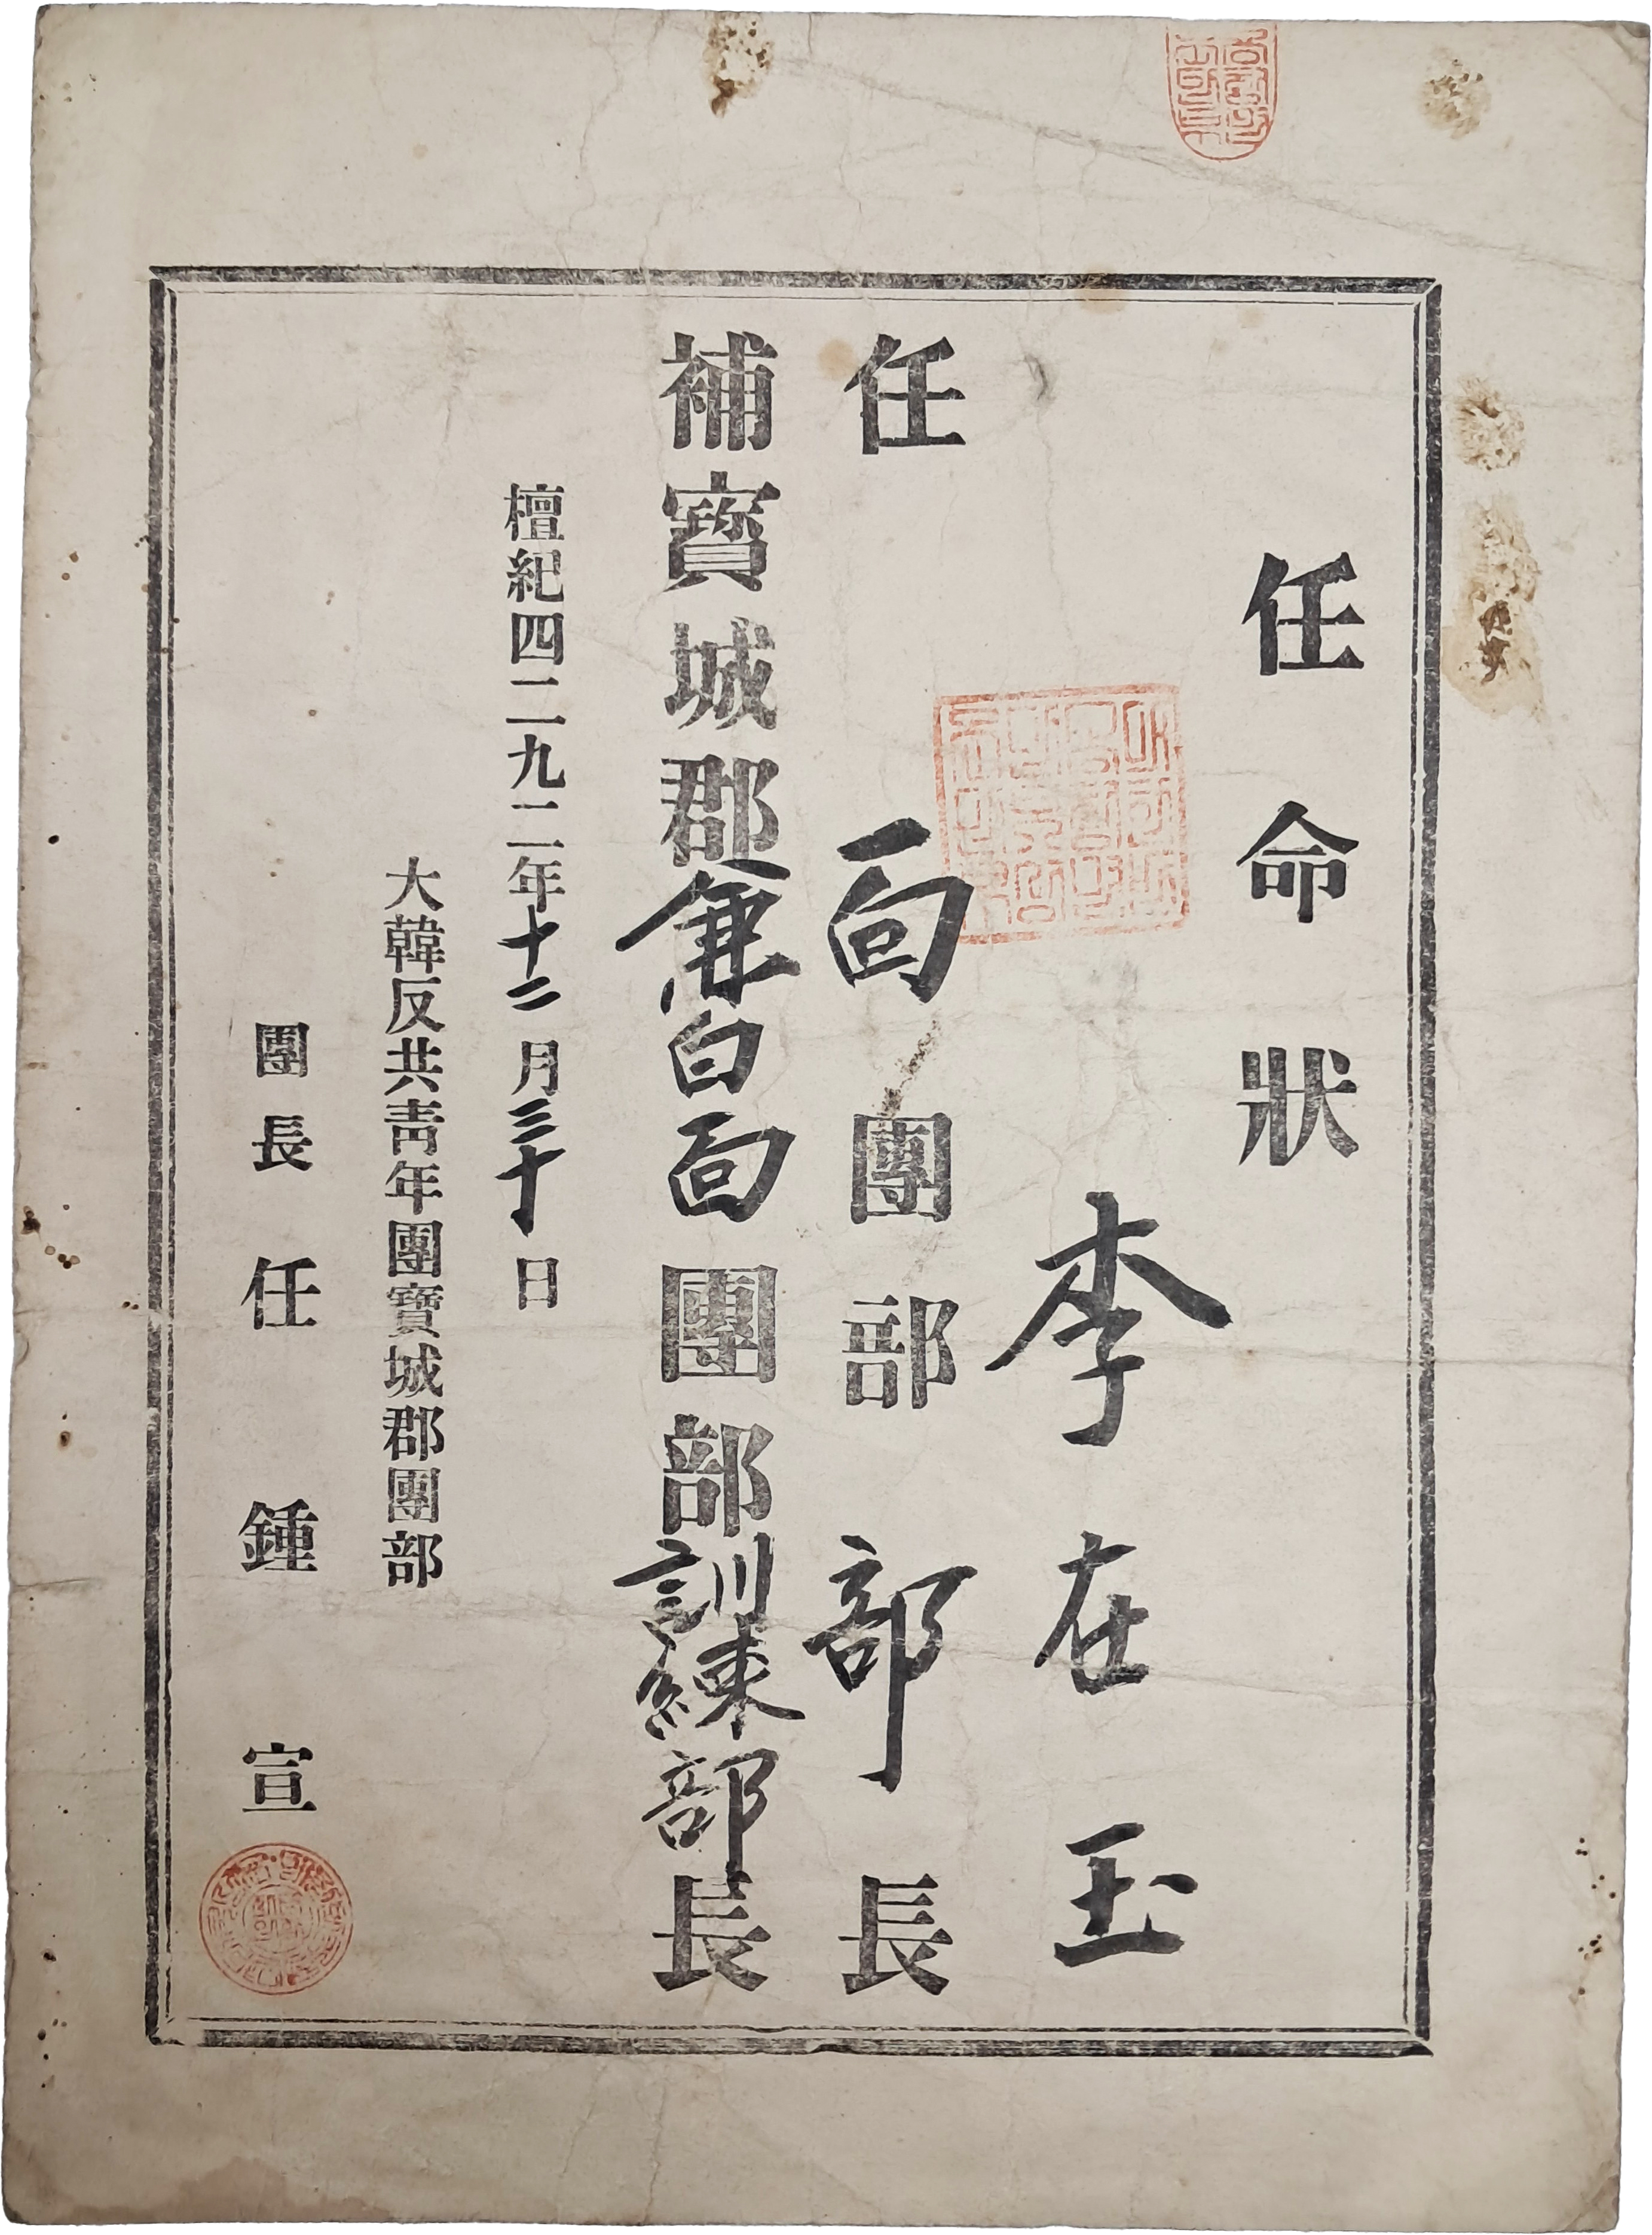 任命狀
李在玉
任 面團部部長
補寶城郡兼白面團部訓練部長
檀紀四二九二年十二月三十日
大韓反共靑年團寶城郡團部
團長 任鍾宣